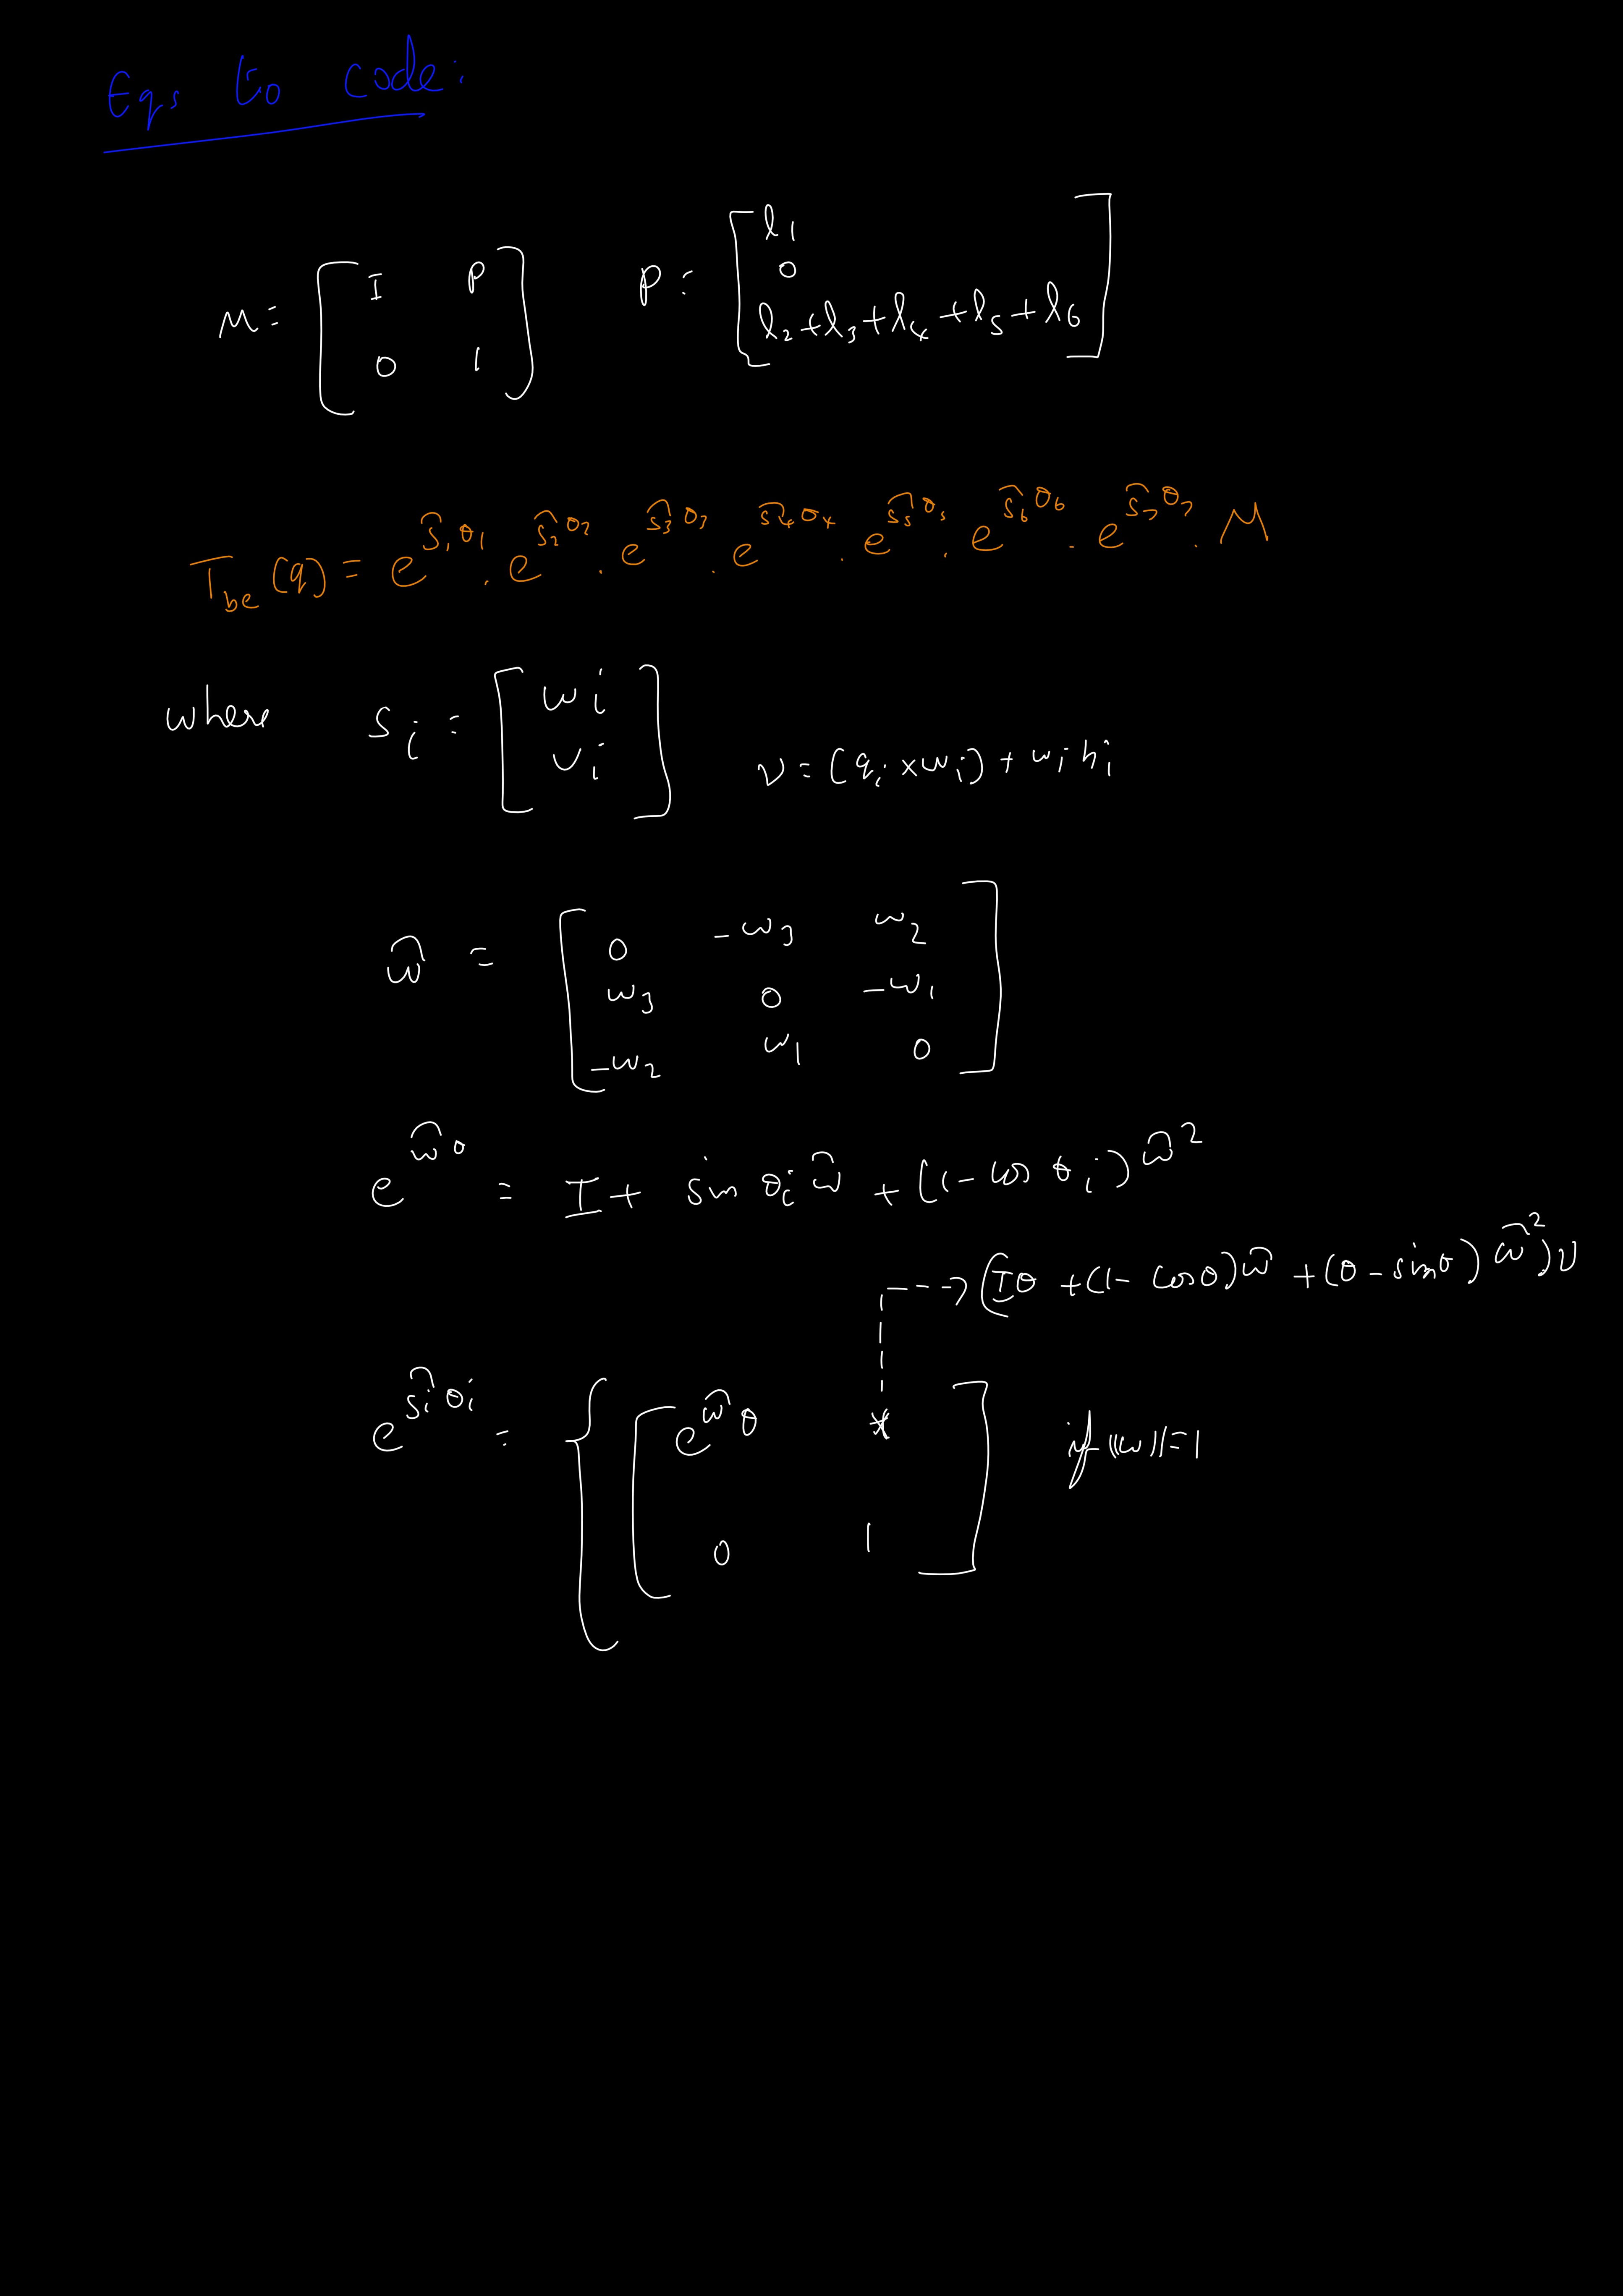 Eqs to code:
M = [ I P ; 0 1 ] P = [ l₁ ; 0 ; l₂+l₃+l₄+l₅+l₆ ]
T_be(q) = e^{ŝ₁θ₁} . e^{ŝ₂θ₂} . e^{ŝ₃θ₃} . e^{ŝ₄θ₄} . e^{ŝ₅θ₅} . e^{ŝ₆θ₆} . e^{ŝ₇θ₇} . M
where s_i = [ w_i ; v_i ] v = (q_i × w_i) + w_i h_i
ŵ = [ 0 -w₃ w₂ ; w₃ 0 -w₁ ; -w₂ w₁ 0 ]
e^{ŵθ} = I + sin θ_i ŵ + (1 - cos θ_i) ŵ²
* --> (Iθ + (1 - cosθ)ŵ + (θ - sinθ) ŵ²)v
e^{ŝ_iθ_i} = { [ e^{ŵθ} * ; 0 1 ] if ||w||=1